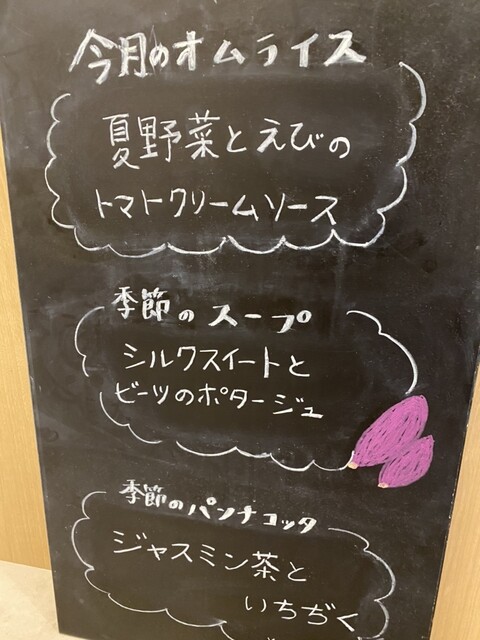 今月のオムライス
夏野菜とえびの
トマトクリームソース
季節のスープ
シルクスイートと
ビーツのポタージュ
季節のパンナコッタ
ジャスミン茶と
いちぢく